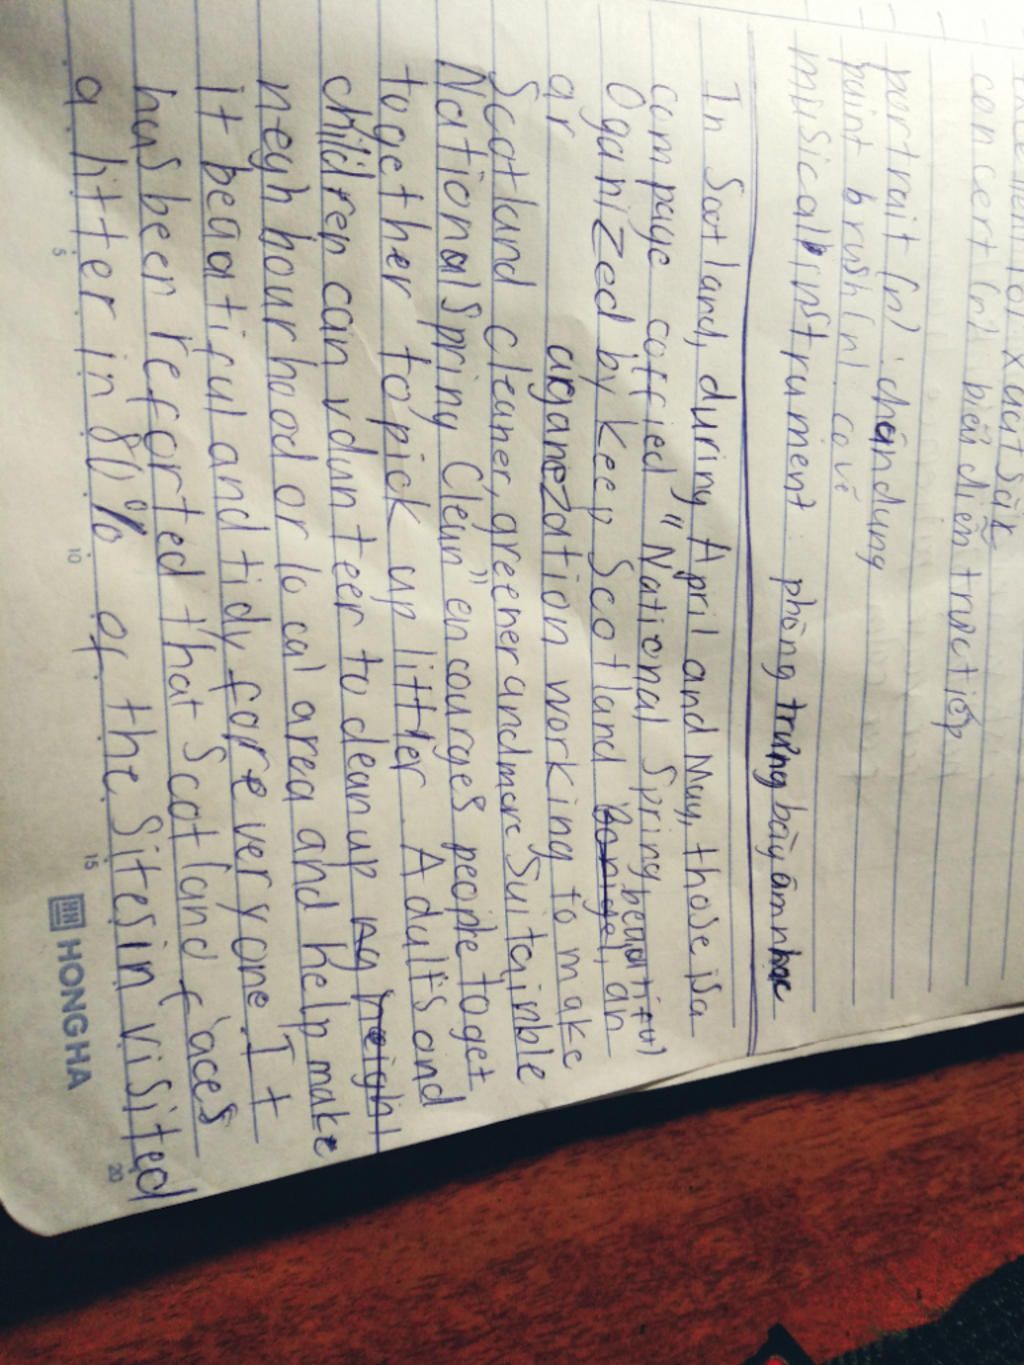 xuất sắc
concert (n) biểu diễn trực tiếp
portrait (n) : chân dung
paint brush (n) cọ vẽ
musical instrument : phòng trưng bày âm nhạc
In Scotland, during April and May, those is a
campage caffied "National Spring beautiful
Oganized by keep Scotland an
ar organezation working to make
Scotland cleaner, greener and more Suitainble
National Spring Clean" encourges people toget
together to pick up litter. Adults and
children can volunteer to clean up
neghbourhood or local area and help make
it beautiful and tidy for everyone. It
has been reforted that Scotland faces
a litter in 80% of the Sites in visited
5
10
15
20
HH HONG HA